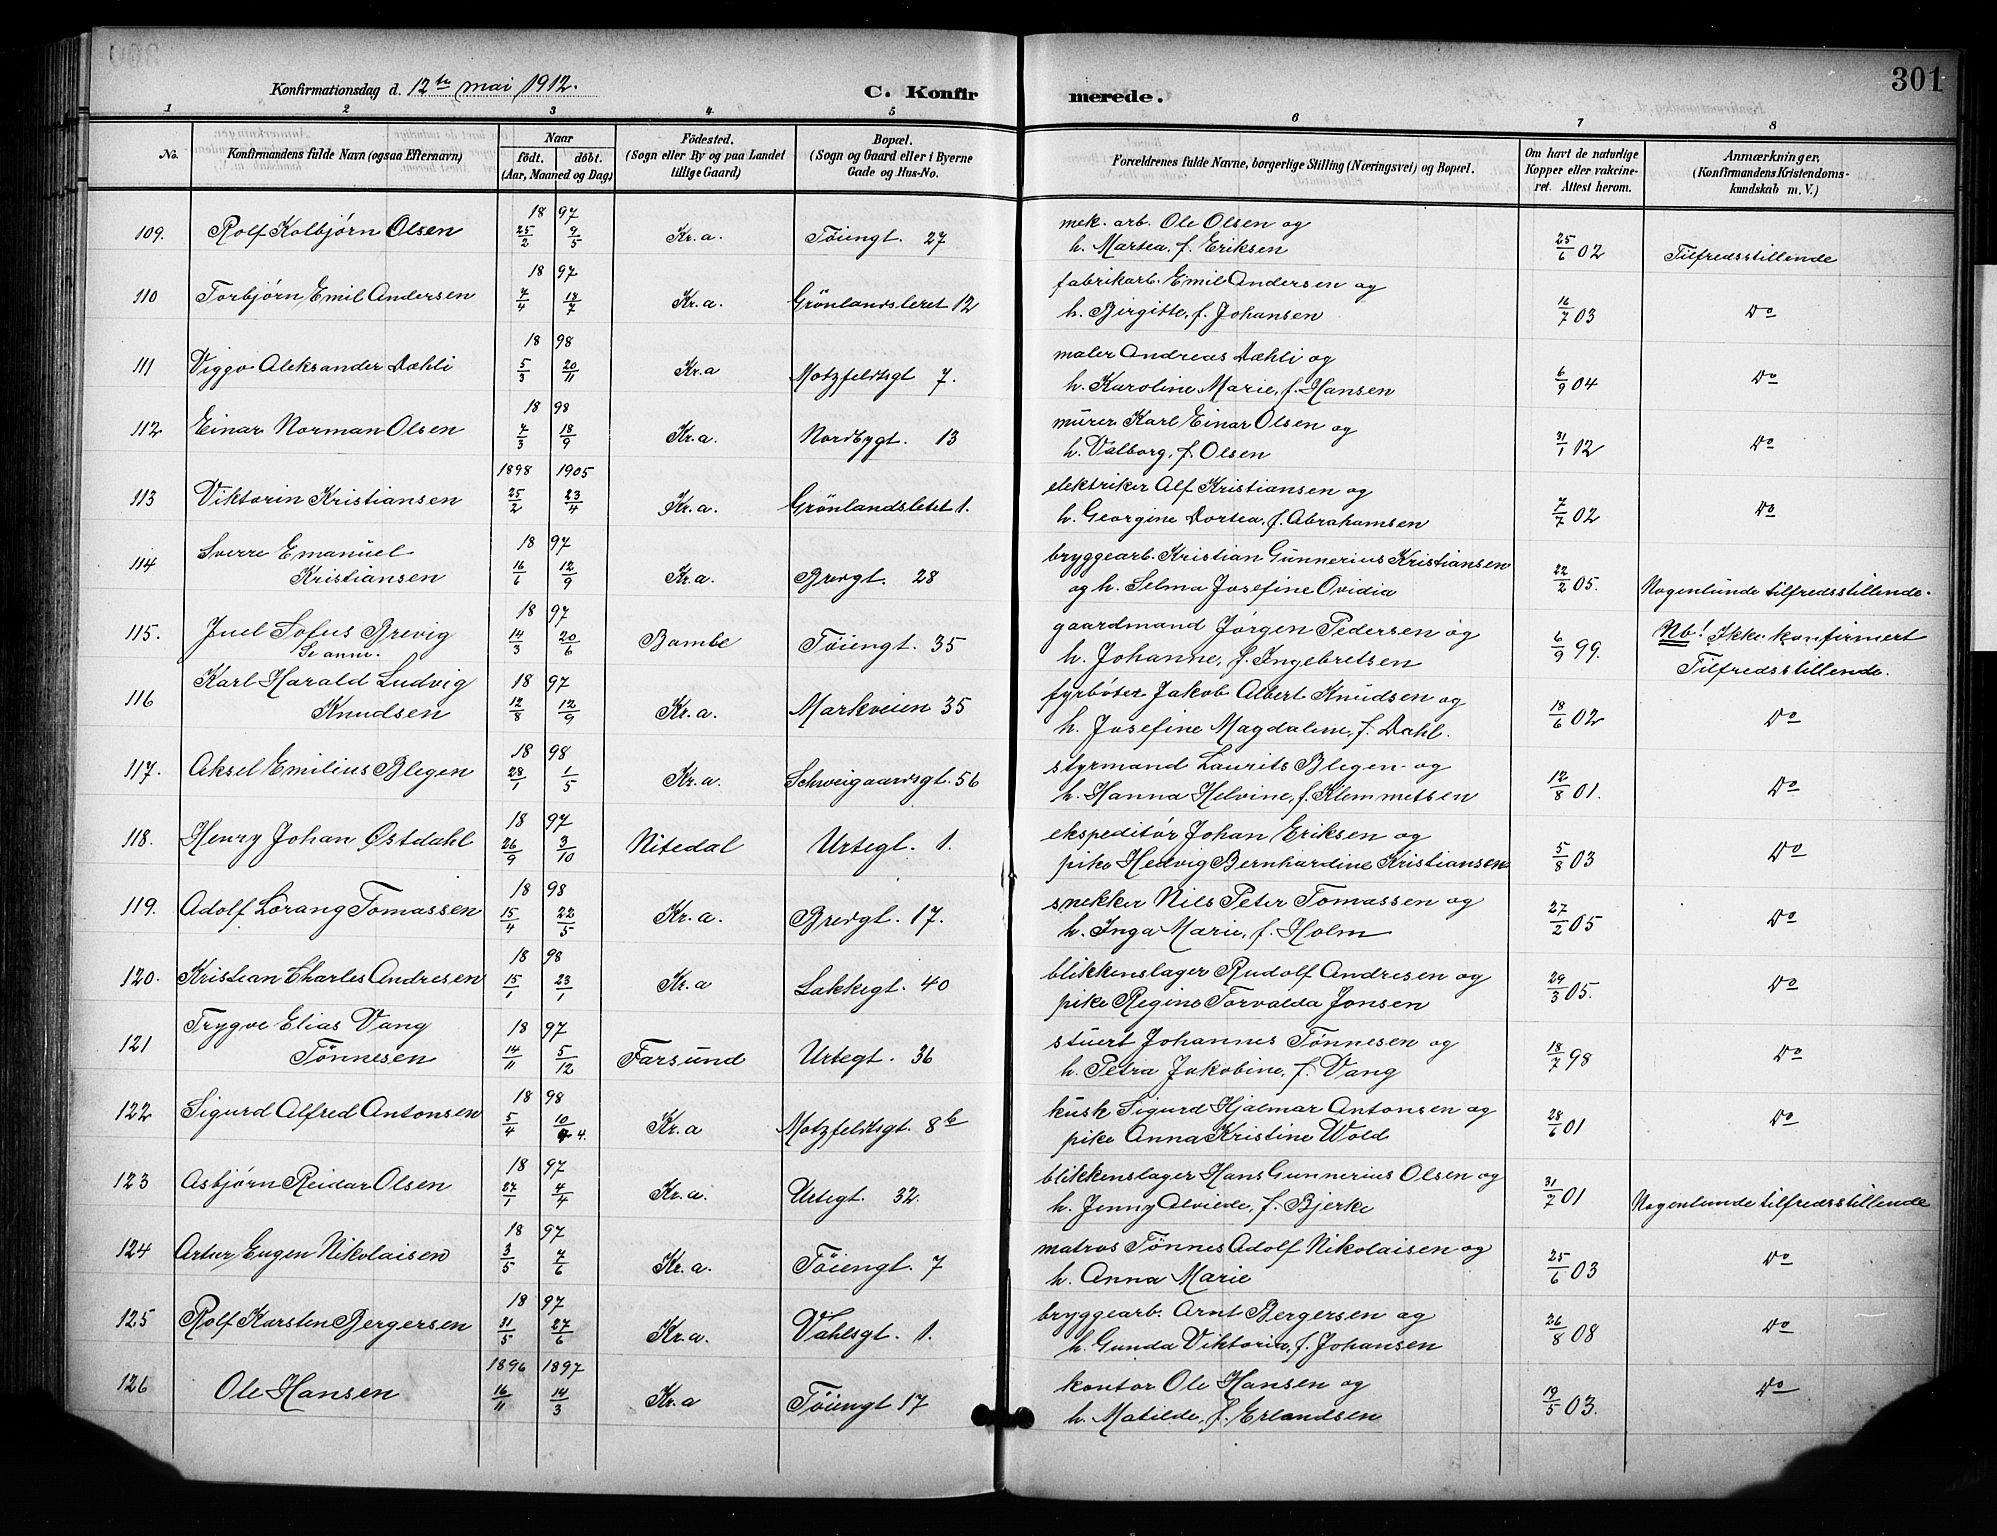 301
Konfirmationsdag d. 12te mai 1912.
C. Konfirmerede.
1 2 3 4 5 6 7 8
No. Konfirmandens fulde Navn (ogsaa Efternavn) Naar født. døbt. (Aar, Maaned og Dag) Fødested. (Sogn eller By og paa Landet tillige Gaard) Bopæl. (Sogn og Gaard eller i Byerne Gade og Hus-No. Forældrenes fulde Navne, borgerlige Stilling (Næringsvei) og Bopæl. Om havt de naturlige Kopper eller vakcineret. Attest herom. Anmærkninger. (Konfirmandens Kristendomskundskab m. V.)
109. Rolf Kolbjørn Olsen 18 97 25/2 9/5 Kr.a. Töiengt. 27 mek. arb. Ole Olsen og h. Martea, f. Eriksen 25/6 02 Tilfredsstillende
110 Torbjørn Emil Andersen 18 97 7/4 17/7 Kr.a. Grönlandsleret 12 fabrikarb. Emil Andersen og h. Birgitte, f. Johansen 16/7 03 Do
111 Viggo Aleksander Dæhli 18 98 5/3 20/11 Kr.a Motzfeldtsgt 7. maler Andreas Dæhli og h. Karoline Marie, f. Hansen 6/9 04 Do
112 Einar Norman Olsen 18 98 7/3 18/9 Kr.a. Nordbygt. 13 murer Karl Einar Olsen og h. Valborg, f. Olsen 31/1 12 Do
113 Viktorin Kristiansen 1898 1905 25/2 23/4 Kr.a. Grönlandsleret 1. elektriker Alf Kristiansen og h. Georgine Dortea, f. Abrahamsen 7/7 02 Do
114 Sverre Emanuel Kristiansen 18 97 16/6 12/9 Kr.a. Brevgt. 28 bryggearb. Kristian Gunnerius Kristiansen og h. Selma Josefine Ovidia 22/2 05. Nogenlunde tilfredsstillende.
115. Juel Sofus Brevig Se anm. 18 97 14/3 20/6 Bamble Töiengt. 35 gaardmand Jørgen Pedersen og h. Johanne, f. Ingebretsen 6/9 99. Nb! Ikke konfirmert Tilfredsstillende.
116 Karl Harald Ludvig Knudsen 18 97 12/8 12/9 Kr.a. Markveien 35 fyrbøter Jakob Albert Knudsen og h. Josefine Magdalene, f. Dahl. 18/6 02 Do
117. Aksel Emilius Blegen 18 98 28/1 1/5 Kr.a. Schweigaardsgt. 56 styrmand Laurits Blegen og h. Hanna Helvine, f. Klemmetsen 12/8 01. Do
118. Henry Johan Østdahl 18 97 26/9 3/10 Nitedal Urtegt. 1. ekspeditör Johan Eriksen og pike Hedvig Bernhardine Kristiansen 5/8 03 Do
119. Adolf Lorang Tomassen 18 98 15/4 22/5 Kr.a. Brevgt. 17. snekker Nils Peter Tomassen og h. Inga Marie, f. Holm 27/2 05 Do
120. Kristian Charles Andresen 18 98 15/1 23/1 Kr.a Lakkegt. 40 blikkenslager Rudolf Andresen og pike Regine Torvalda Jonsen 29/3 05. Do
121 Trygve Elias Vang Tönnesen 18 97 14/11 5/12 Farsund Urtegt. 36 stuert Johannes Tönnesen og h. Petra Jakobine, f. Vang 18/7 98 Do
122 Sigurd Alfred Antonsen 18 98 5/4 10/4 4. Kr.a Motzfeldtsgt. 8b kusk Sigurd Hjalmar Antonsen og pike Anna Kristine Wold 28/6 01 Do
123 Asbjørn Reidar Olsen 18 97 27/1 4/4 Kr.a. Urtegt. 32. blikkenslager Hans Gunnerius Olsen og h. Jenny Alviede, f. Bjerke 31/7 01 Nogenlunde tilfredsstillende
124 Artur Eugen Nikolaisen 18 97 3/5 7/6 Kr.a. Töiengt. 7 matros Tönnes Adolf Nikolaisen og h. Anna Marie 25/6 03 Do
125 Rolf Karsten Bergersen 18 97 31/5 27/6 Kr.a. Vahlsgt. 1. bryggearb. Arnt Bergersen og h. Gunda Viktoria, f. Johansen 26/8 08 Do
126 Ole Hansen 1896 1897 16/11 14/3 Kr.a Töiengt 17 kontor Ole Hansen og h. Matilde, f. Erlandsen 19/5 03. Do